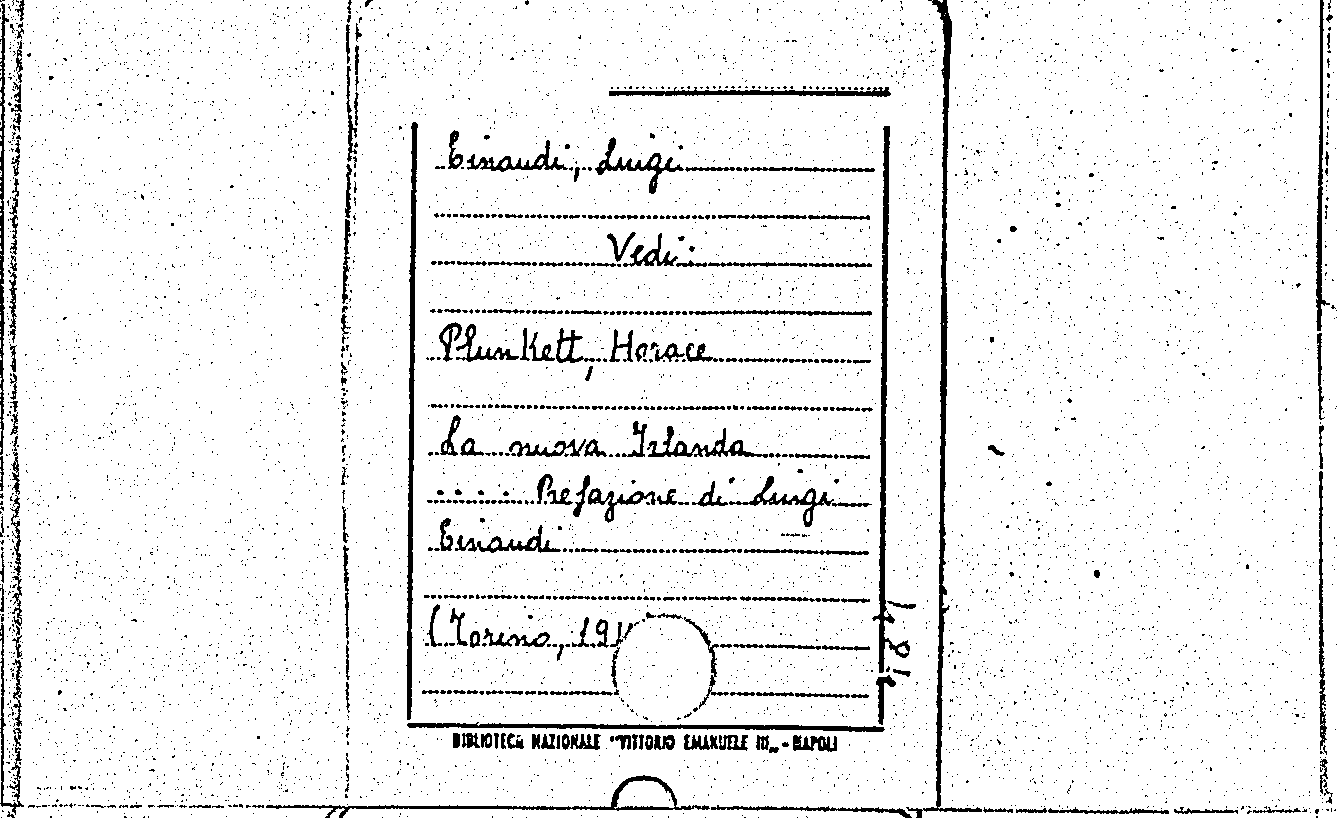 Einaudi, Luigi
Vedi:
Plunkett, Horace
La nuova Irlanda
.... Prefazione di Luigi
Einaudi
(Torino, 191
BIBLIOTECA NAZIONALE "VITTORIO EMANUELE III" - NAPOLI